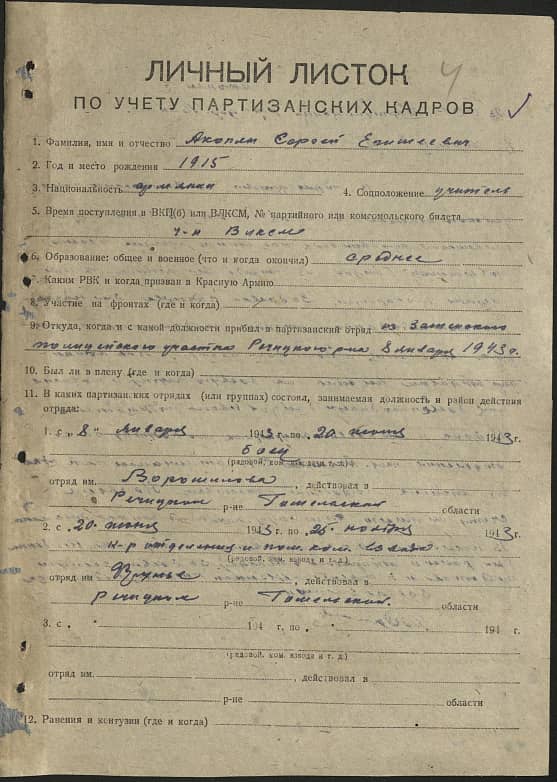 4
ЛИЧНЫЙ ЛИСТОК
ПО УЧЕТУ ПАРТИЗАНСКИХ КАДРОВ
1. Фамилия, имя и отчество Акопян Егишеевич
2. Год и место рождения 1915
3. Национальность 4. Соцположение учитель
5. Время поступления в ВКП(б) или ВЛКСМ, № партийного или комсомольского билета
ч-н Влксм
6. Образование: общее и военное (что и когда окончил) среднее
7. Каким РВК и когда призван в Красную Армию
8. Участие на фронтах (где и когда)
9. Откуда, когда и с какой должности прибыл в партизанский отряд из
полицейского участка Речицкого р-на 8 января 1943 г.
10. Был ли в плену (где и когда)
11. В каких партизанских отрядах (или группах) состоял, занимаемая должность и район действия
отряда:
1. с „8" января 1943 г. по 20 июня 1943 г.
боец
(рядовой, ком. взвода и т. д.)
отряд им. Ворошилова , действовал в
Речицком р-не Гомельской области
2. с 20 июня 1943 г. по 25 ноября 1943 г.
к-р отделения и пом. ком. взвода
(рядовой, ком. взвода и т. д.)
отряд им. Фрунзе , действовал в
Речицком р-не Гомельской области
3. с „ " 194 г. по „ 194 г.
(рядовой, ком. взвода и т. д.)
отряд им. , действовал в
р-не области
12. Ранения и контузии (где и когда)